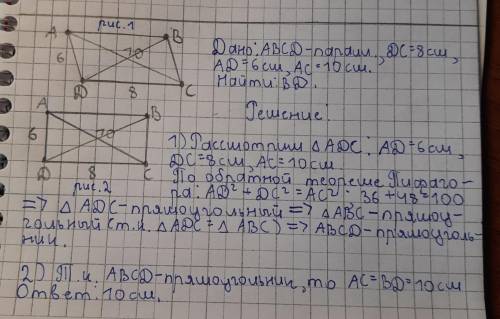 рис.1
A
B
6
10
D
8
C
Дано: ABCD-парал., DC=8см,
AD=6см, AC=10см.
Найти: BD.
Решение:
A
B
6
10
D
8
C
рис.2
1) Рассмотрим △ADC: AD=6см,
DC=8см, AC=10см.
По обратной теореме Пифаго-
ра: AD²+DC²=AC² 36+48=100
=> △ADC-прямоугольный => △ABC-прямоу-
гольный (т.к. △ADC=△ABC) => ABCD-прямоуголь-
ник.
2) Т.к. ABCD-прямоугольник, то AC=BD=10см
Ответ: 10см.